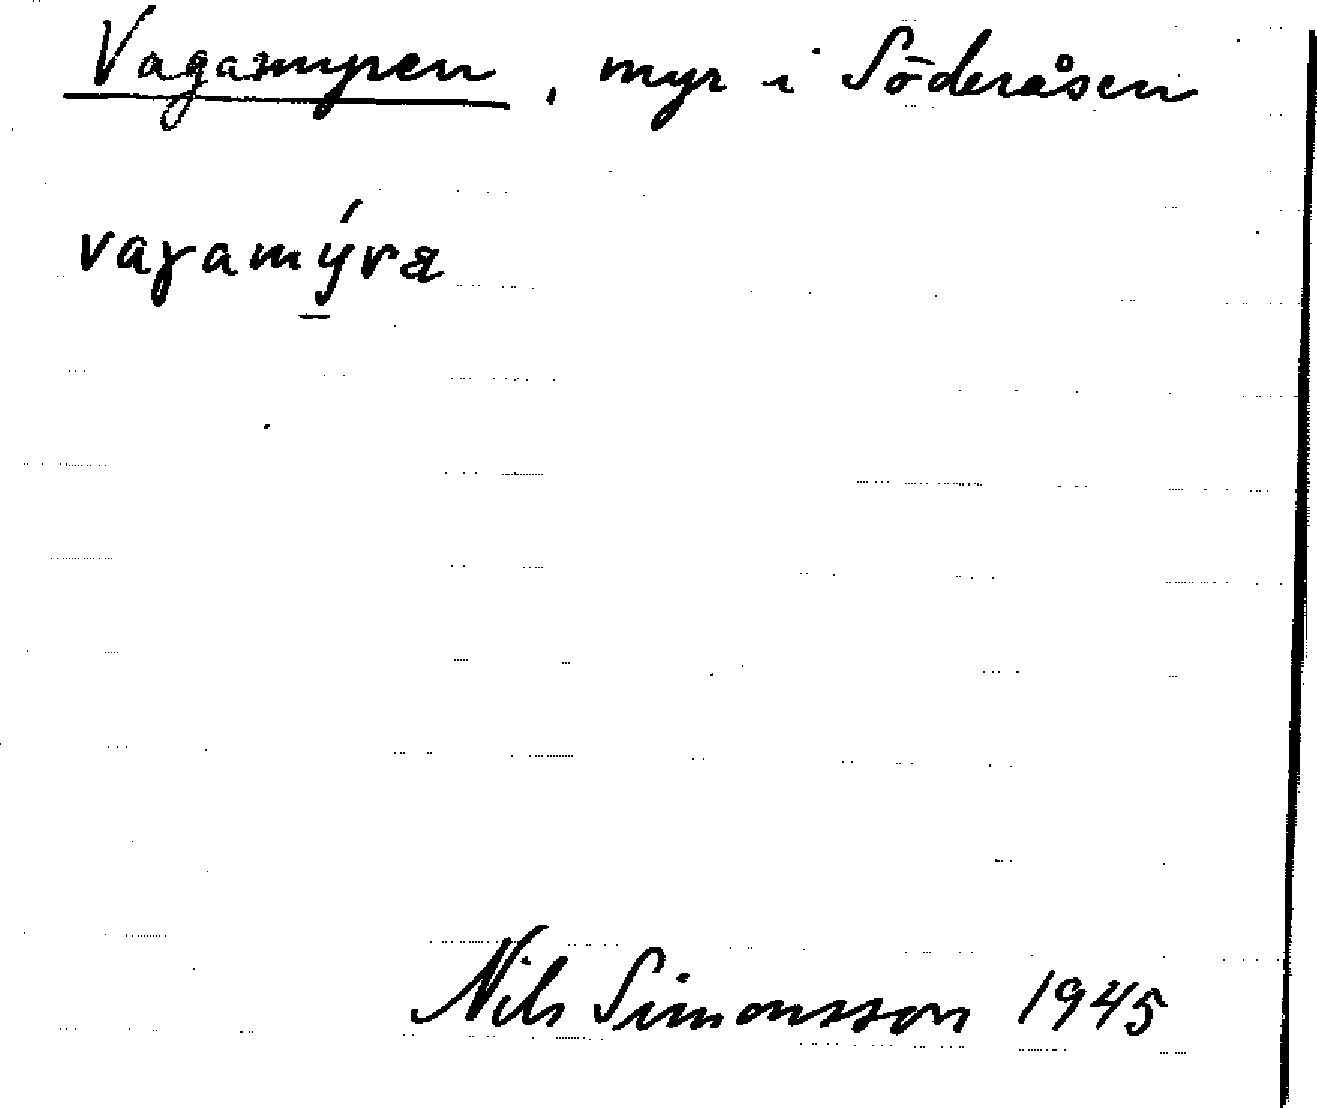 Vagamyren, myr i Söderåsen
vaɣamý̱ræ
Nils Simonsson 1945